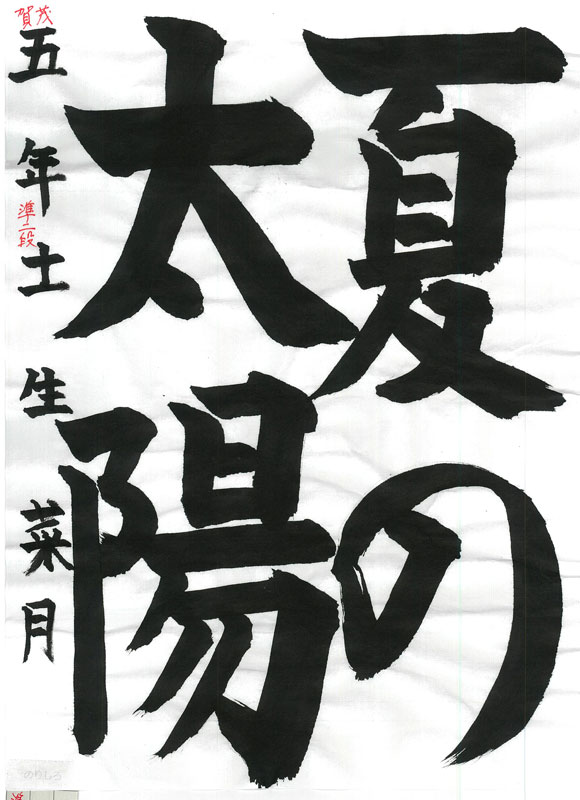 夏の
太陽
賀茂
五年土生菜月
準二段
のりしろ